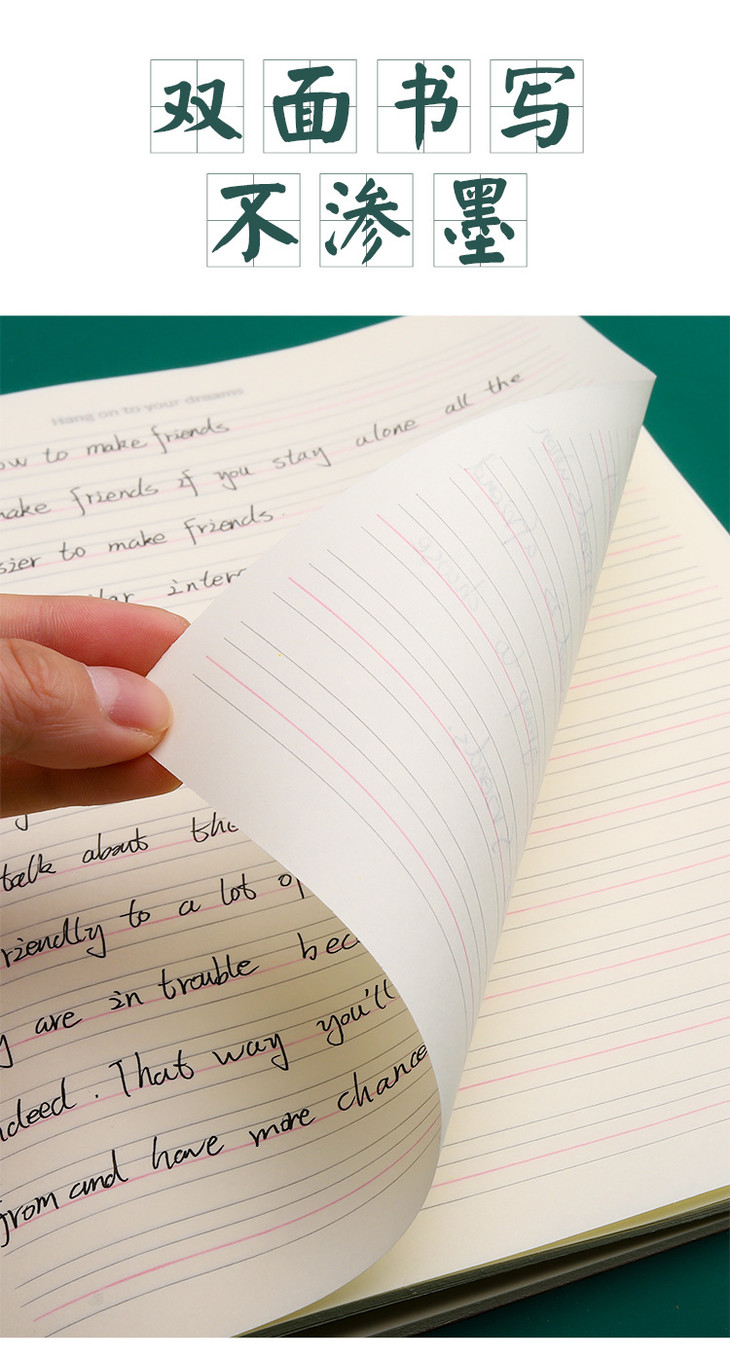 双面书写
不渗墨
Hang on to your dreams
ow to make friends
make friends if you stay alone all the
sier to make friends.
lar inter
talk about the
riendly to a lot of
y are in trouble bec
ndeed. That way you'll
from and have more chance